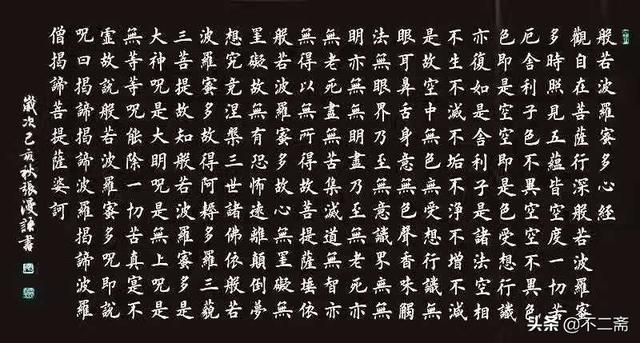 般若波羅蜜多心經
觀自在菩薩行深般若波羅蜜
多時照見五蘊皆空度一切苦
厄舍利子色不異空空不異色
色即是空空即是色受想行識
亦復如是舍利子是諸法空相
不生不滅不垢不淨不增不減
是故空中無色無受想行識無
眼耳鼻舌身意無色聲香味觸
法無眼界乃至無意識界無無
明亦無無明盡乃至無老死亦
無老死盡無苦集滅道無智亦
無得以無所得故菩提薩埵依
般若波羅蜜多故心無罣礙無
罣礙故無有恐怖遠離顛倒夢
想究竟涅槃三世諸佛依般若
波羅蜜多故得阿耨多羅三藐
三菩提故知般若波羅蜜多是
大神呪是大明呪是無上呪是
無等等呪能除一切苦真實不
虛故說般若波羅蜜多呪即說
呪曰揭諦揭諦波羅揭諦波羅
僧揭諦菩提薩婆訶
歲次己亥秋張漫書
头条 @不二斋